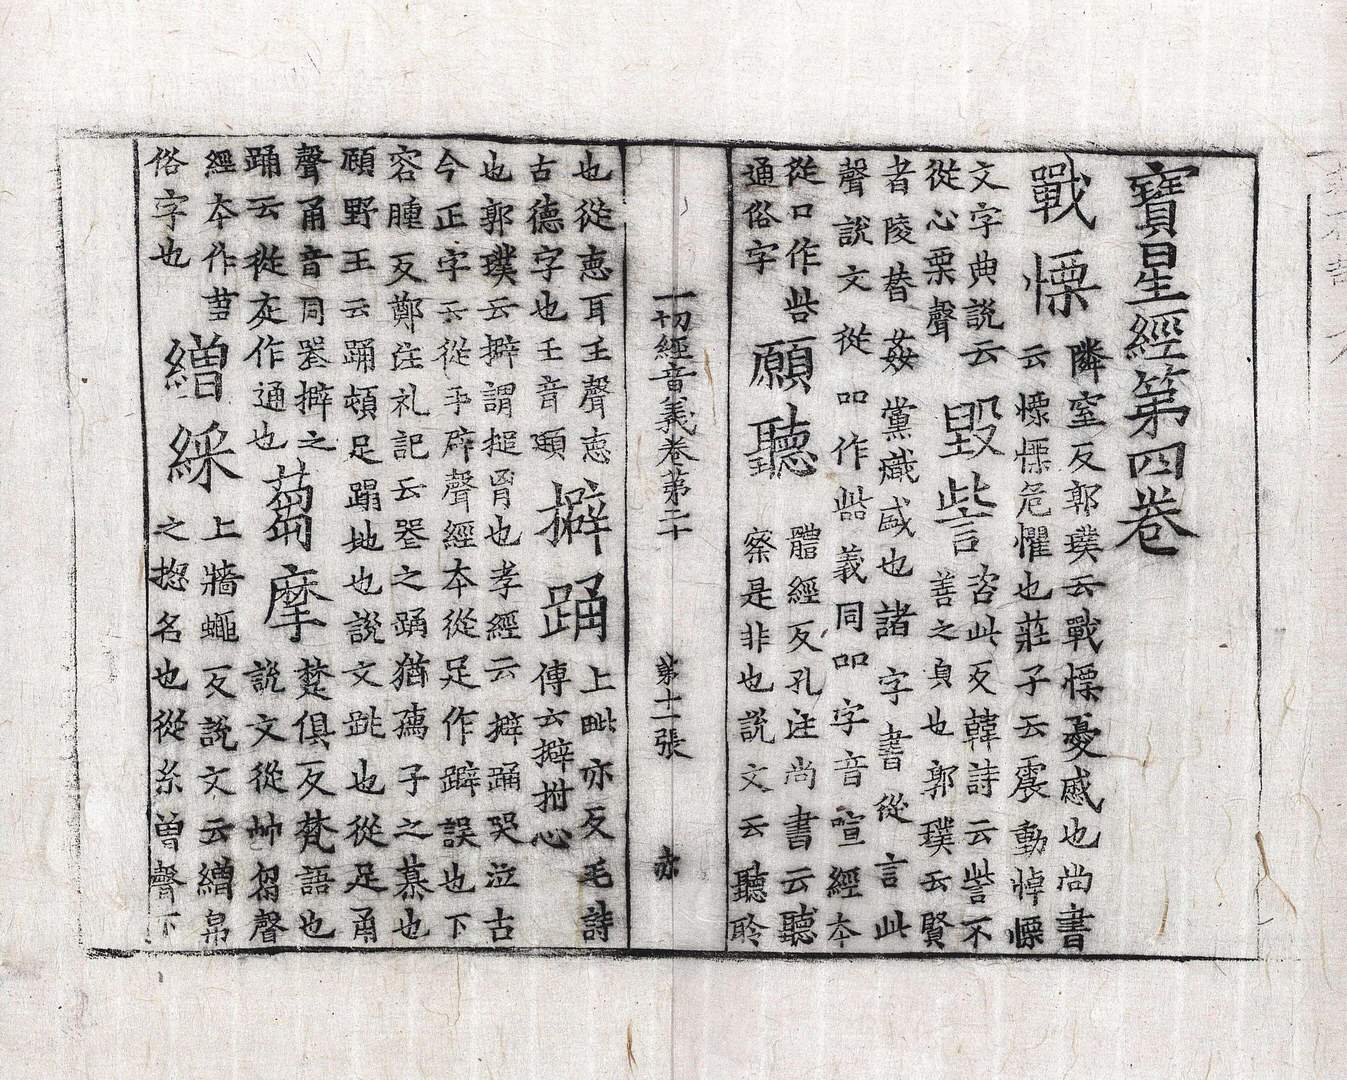 寶星經第四卷
戰慄 隣窒反郭璞云戰慄憂慼也尚書
云慄慄危懼也莊子云震動悼慄
文字典說云
從心栗聲 毀呰言 咨此反韓詩云訾不
善之皃也郭璞云賢
者陵替姦黨熾盛也諸字書從言此
聲說文從吅作㗊義同吅字音喧經本
從口作呰
通俗字 願聽 體經反孔注尚書云聽
察是非也說文云聽聆
一切經音義卷第二十 第十一張 亦
也從悳耳𡈼聲悳
古德字也𡈼音頲 擗踊 上毗亦反毛詩
傳云擗拊心
也郭璞云擗謂搥胷也孝經云擗踊哭泣古
今正字云從手辟聲經本從足作躃誤也下
容腫反鄭注礼記云器之踊猶孺子之慕也
顧野王云踊頓足蹋地也說文跳也從足甬
聲甬音同器擗之
踊云從辵作通也 蒭摩 楚俱反梵語也
說文從艸芻聲
經本作蒭
俗字也 繒綵 上牆蠅反說文云繒帛
之揔名也從糸曾聲下